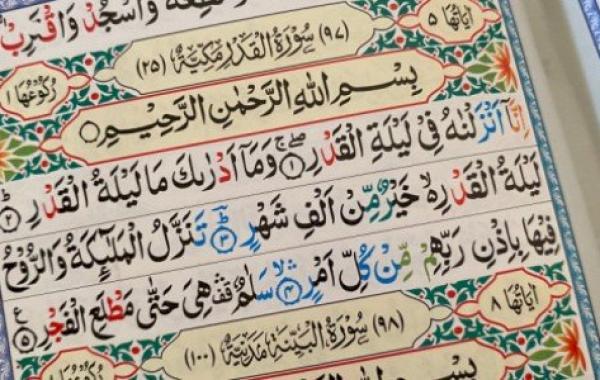 وَاسْجُدْ وَاقْتَرِبْ
اٰيَاتُهَا ٥ (٩٧) سُوْرَةُ الْقَدْرِ مَكِّيَّةٌ (٢٥) رُكُوْعُهَا ١
بِسْمِ اللّٰهِ الرَّحْمٰنِ الرَّحِيْمِ
اِنَّاۤ اَنْزَلْنٰهُ فِيْ لَيْلَةِ الْقَدْرِ ۚۖ ۝١ وَمَاۤ اَدْرٰىكَ مَا لَيْلَةُ الْقَدْرِ ؕ ۝٢
لَيْلَةُ الْقَدْرِ ۙ۬ خَيْرٌ مِّنْ اَلْفِ شَهْرٍ ؕ ۝٣ تَنَزَّلُ الْمَلٰٓئِكَةُ وَالرُّوْحُ
فِيْهَا بِاِذْنِ رَبِّهِمْ مِّنْ كُلِّ اَمْرٍ ۙۛ ۝٤ سَلٰمٌ ۛ۫ هِيَ حَتّٰى مَطْلَعِ الْفَجْرِ ۝٥ ع
اٰيَاتُهَا ٨ (٩٨) سُوْرَةُ الْبَيِّنَةِ مَدَنِيَّةٌ (١٠٠) رُكُوْعُهَا ١
بِسْمِ اللّٰهِ